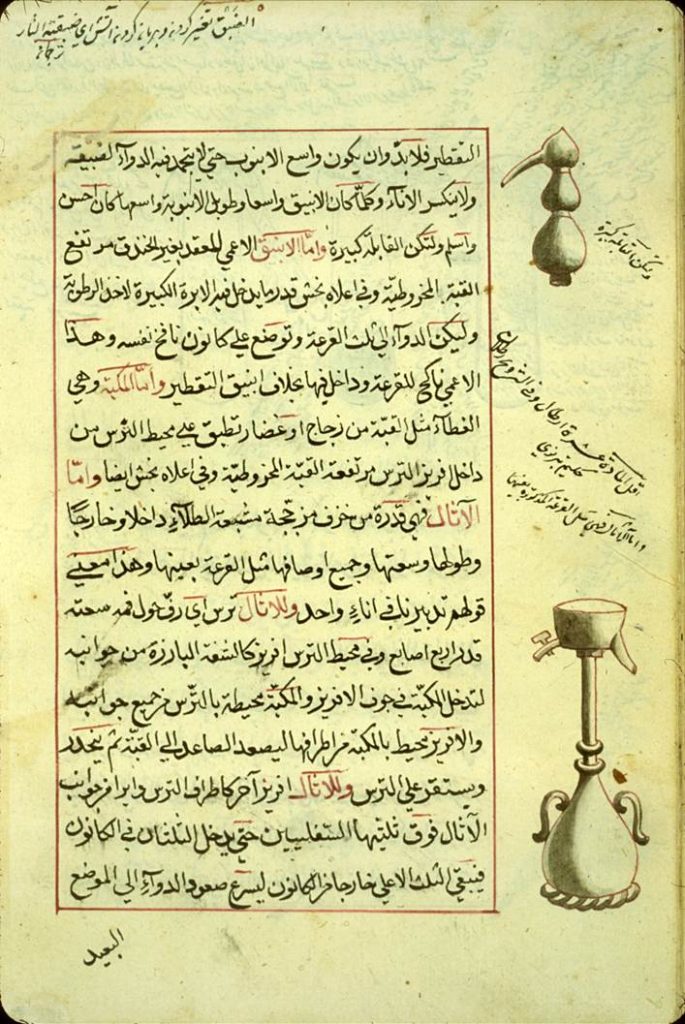 التقطير فلا بد وان يكون واسع الانبوب حتي لا يتجمد فيه الدوآء لضيقه
ولا ينكسر الاناء وكلما كان الانبيق واسعا وطويل الانبوبة واسعها كان احسن
واسلم ولتكن القابلة كبيرة واما الانبيق الاعمي للمعقد بغير الخندق مرتفع
القبة المخروطية وفي اعلاه بخش قدر ما يدخل فيه الابرة الكبيرة لاخذ الرطوبة
وليكن الدوآء الي ثلث القرعة وتوضع علي كانون نافخ نفسه وهذا
الاعمي ناكح للقرعة وداخل فيها بخلاف انبيق التقطير واما المكبة وهي
الغطاء مثل القبة من زجاج او غضار تطبق علي محيط الترس من
داخل افريز الترس مرتفعة القبة المخروطية وفي اعلاه بخش ايضا واما
الآثال فهي قدرة من خزف مزججة مشبعة الطلاء داخلا وخارجا
وطولها وسعتها وجميع اوصافها مثل القرعة بعينها وهذا معني
قولهم تدبيرنا في اناء واحد وللاثال ترس اي رف حول فمه سعته
قدر اربع اصابع وفي محيط الترس افريز كالشفة البارزة من جوانبه
لتدخل المكبة في جوف الافريز والمكبة محيطة بالترس من جميع جوانبه
والافريز محيط بالمكبة من اطرافها ليصعد الصاعد الي القبة ثم ينحدر
ويستقر علي الترس وللاثال افريز آخر كاطراف الترس وابرا من جوانب
الآثال فوق ثلثيها السفليين حتي يدخل الثلثان في الكانون
فيبقي الثلث الاعلي خارجا من الكانون ليسرع صعود الدوآء الي الموضع
البعيد
ولتكن القابلة كبيرة
حكيم تبريزي